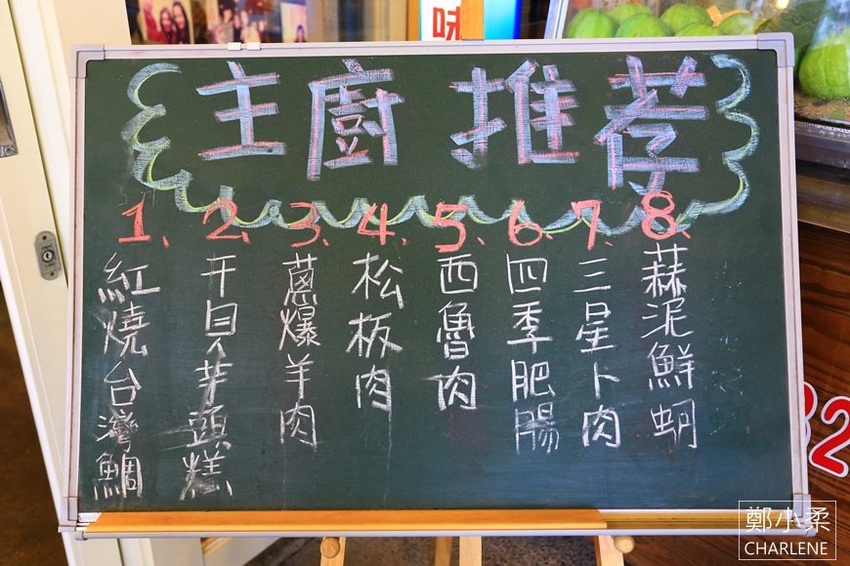 主廚推荐
1、紅燒台灣鯛
2、干貝芋頭糕
3、蔥爆羊肉
4、松板肉
5、西魯肉
6、四季肥腸
7、三星卜肉
8、蒜泥鮮蚵
味
鄭小柔
CHARLENE